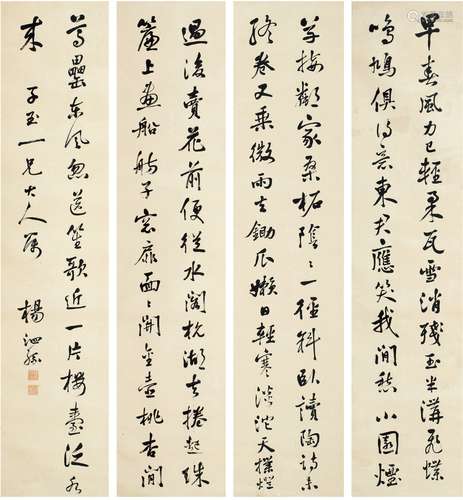 早春風力已輕柔瓦雪消殘玉半溝飛蝶
鳴鳩俱得意東君應笑我閒愁小園煙
草接鄰家桑柘陰〻一徑斜臥讀陶詩未
終卷又乘微雨去鋤瓜嬾日輕寒淡沱天撲燈
過後賣花前便從水閣杭湖去捲起珠
簾上畫船舫子窗扉面〻開金壺桃杏間
尊罍東風忽送笙歌近一片樓臺泛水
來 子玉一兄大人屬 楊泗孫